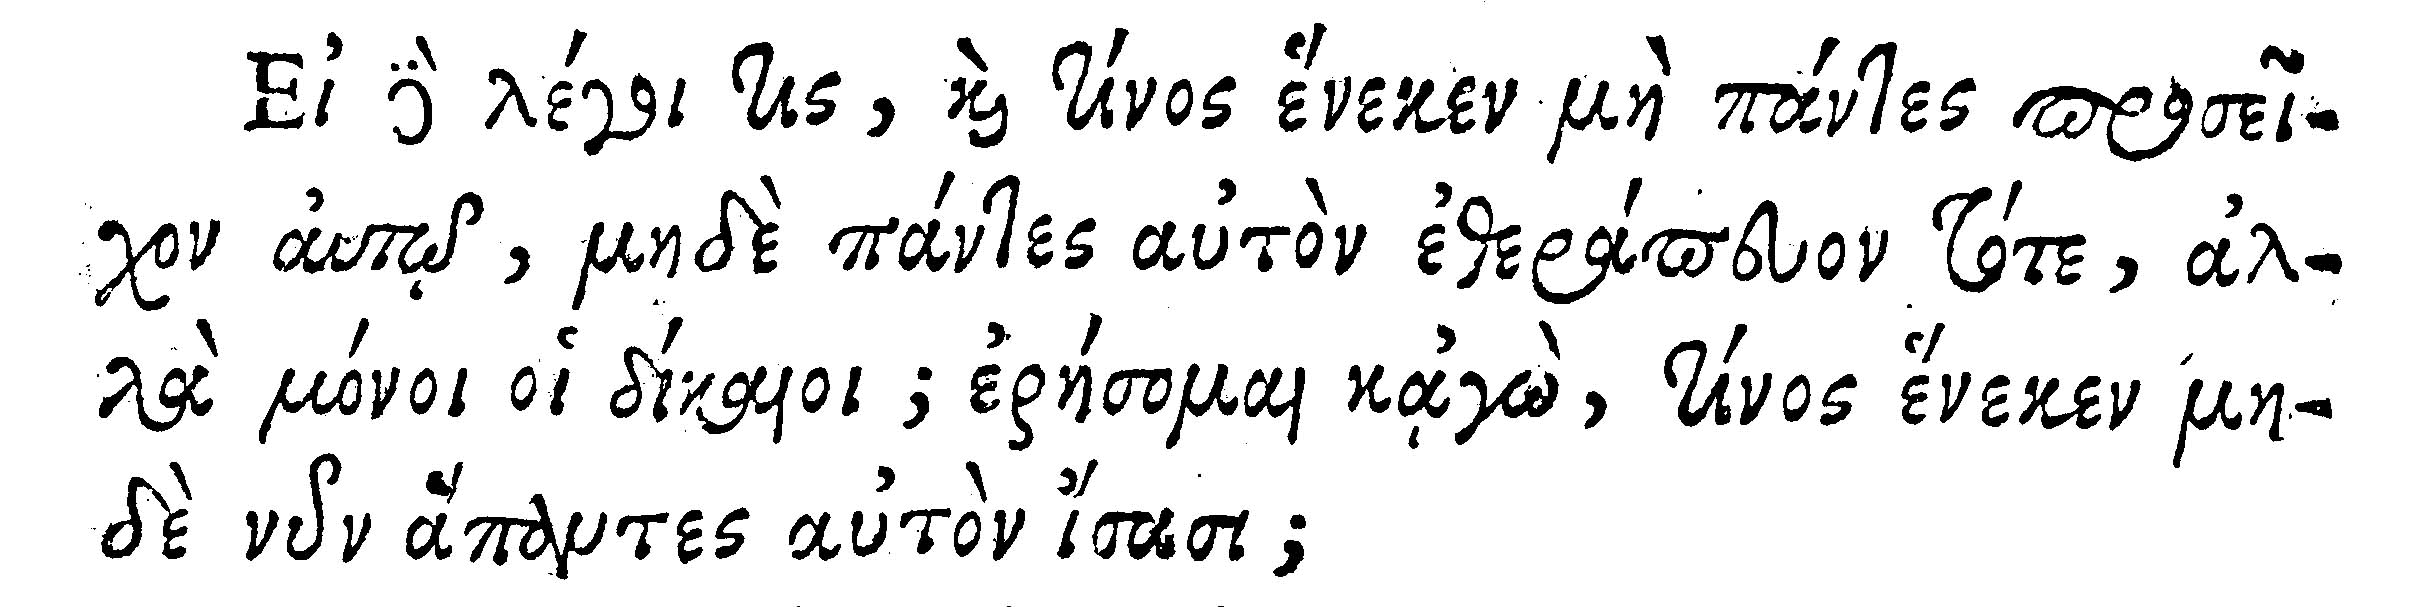 Εἰ δὲ λέγει τις, καὶ τίνος ἕνεκεν μὴ πάντες προσεῖ-
χον αὐτῷ, μηδὲ πάντες αὐτὸν ἐθεράπευον τότε, ἀλ-
λὰ μόνοι οἱ δίκαιοι; ἐρήσομαι κᾀγὼ, τίνος ἕνεκεν μη-
δὲ νῦν ἅπαντες αὐτὸν ἴσασι;